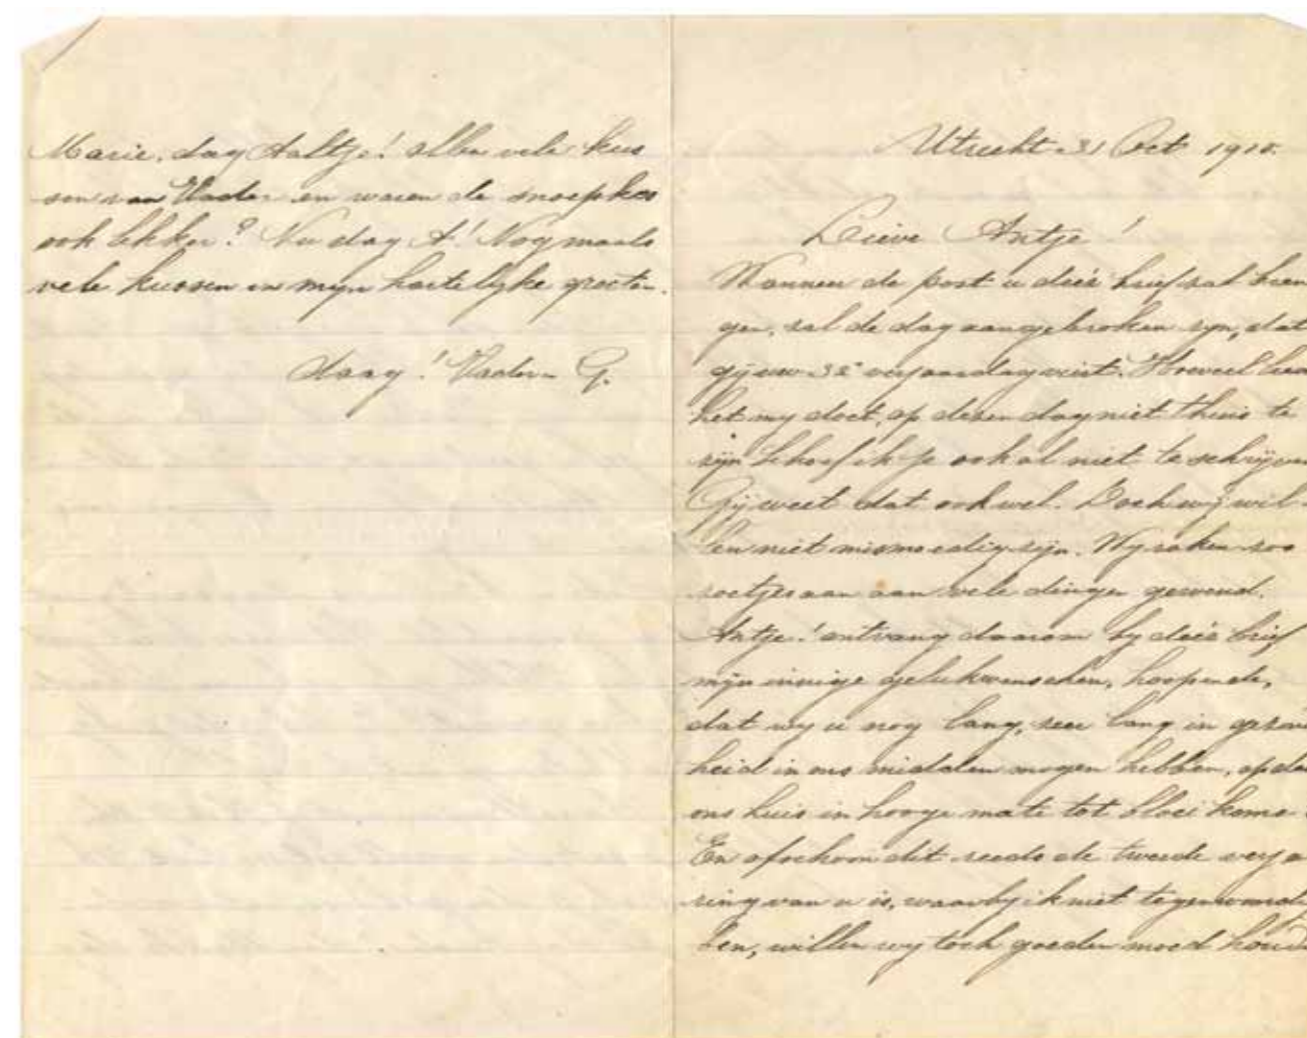 Marie, dag Aaltje! Allen vele kus
sen van Vader en waren de snoepkes
ook lekker? Nu dag A! Nogmaals
vele kussen en mijn hartelijke groeten.
daag! Vader G.
Utrecht 31 Oct 1910.
Lieve Antje!
Wanneer de post u deés brief zal bren
gen, zal de dag aangebroken zijn, dat
gij uw 32e verjaardag viert. Hoeveel
het mij doet, op dezen dag niet thuis te
zijn behoef ik je ook al niet te schrijven
Gij weet dat ook wel. Doch wij wil-
len niet mismoedig zijn. Wij raken zoo
zoetjes aan aan vele dingen gewend.
Antje! ontvang daarom bij deés brief
mijn innige gelukwenschen, hoopende,
dat wij u nog lang, zeer lang in gezond
heid in ons midden mogen hebben, opdat
ons huis in hooge mate tot bloei kome.
En ofschoon dit reeds de tweede verja
ring van u is, waarbij ik niet tegenwoordig
ben, willen wij toch goeden moed houden